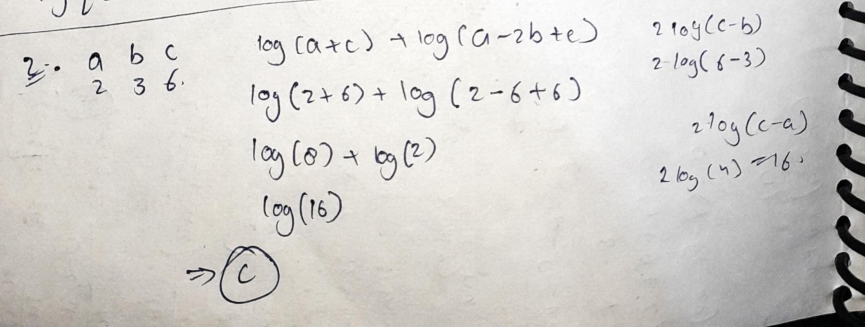 2. a b c
2 3 6.
log(a+c) + log(a-2b+c)
log(2+6) + log(2-6+6)
log(8) + log(2)
log(16)
⇒ C
2 log(c-b)
2 log(6-3)
2 log(c-a)
2 log(4) = 16.